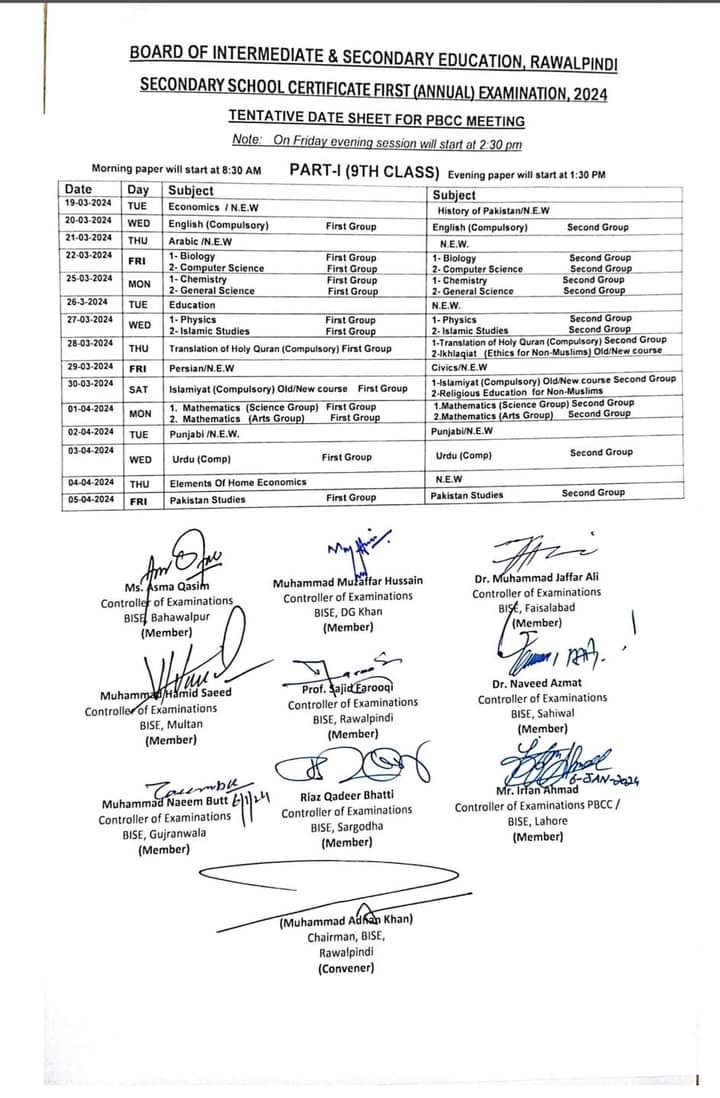 BOARD OF INTERMEDIATE & SECONDARY EDUCATION, RAWALPINDI
SECONDARY SCHOOL CERTIFICATE FIRST (ANNUAL) EXAMINATION, 2024
TENTATIVE DATE SHEET FOR PBCC MEETING
Note: On Friday evening session will start at 2:30 pm
Morning paper will start at 8:30 AM PART-I (9TH CLASS) Evening paper will start at 1:30 PM
Date Day Subject Subject
19-03-2024 TUE Economics / N.E.W History of Pakistan/N.E.W
20-03-2024 WED English (Compulsory) First Group English (Compulsory) Second Group
21-03-2024 THU Arabic /N.E.W N.E.W.
22-03-2024 FRI 1- Biology First Group 1- Biology Second Group
2- Computer Science First Group 2- Computer Science Second Group
25-03-2024 MON 1- Chemistry First Group 1- Chemistry Second Group
2- General Science First Group 2- General Science Second Group
26-3-2024 TUE Education N.E.W.
27-03-2024 WED 1- Physics First Group 1- Physics Second Group
2- Islamic Studies First Group 2- Islamic Studies Second Group
28-03-2024 THU Translation of Holy Quran (Compulsory) First Group 1-Translation of Holy Quran (Compulsory) Second Group
2-Ikhlaqiat (Ethics for Non-Muslims) Old/New course
29-03-2024 FRI Persian/N.E.W Civics/N.E.W
30-03-2024 SAT Islamiyat (Compulsory) Old/New course First Group 1-Islamiyat (Compulsory) Old/New course Second Group
2-Religious Education for Non-Muslims
01-04-2024 MON 1. Mathematics (Science Group) First Group 1.Mathematics (Science Group) Second Group
2. Mathematics (Arts Group) First Group 2.Mathematics (Arts Group) Second Group
02-04-2024 TUE Punjabi /N.E.W. Punjabi/N.E.W
03-04-2024 WED Urdu (Comp) First Group Urdu (Comp) Second Group
04-04-2024 THU Elements Of Home Economics N.E.W
05-04-2024 FRI Pakistan Studies First Group Pakistan Studies Second Group
Ms. Asma Qasim Muhammad Muzaffar Hussain Dr. Muhammad Jaffar Ali
Controller of Examinations Controller of Examinations Controller of Examinations
BISE, Bahawalpur BISE, DG Khan BISE, Faisalabad
(Member) (Member) (Member)
Muhammad Hamid Saeed Prof. Sajid Farooqi Dr. Naveed Azmat
Controller of Examinations Controller of Examinations Controller of Examinations
BISE, Multan BISE, Rawalpindi BISE, Sahiwal
(Member) (Member) (Member)
6-JAN-2024
Muhammad Naeem Butt 6/1/24 Riaz Qadeer Bhatti Mr. Irfan Ahmad
Controller of Examinations Controller of Examinations Controller of Examinations PBCC /
BISE, Gujranwala BISE, Sargodha BISE, Lahore
(Member) (Member) (Member)
(Muhammad Adnan Khan)
Chairman, BISE,
Rawalpindi
(Convener)